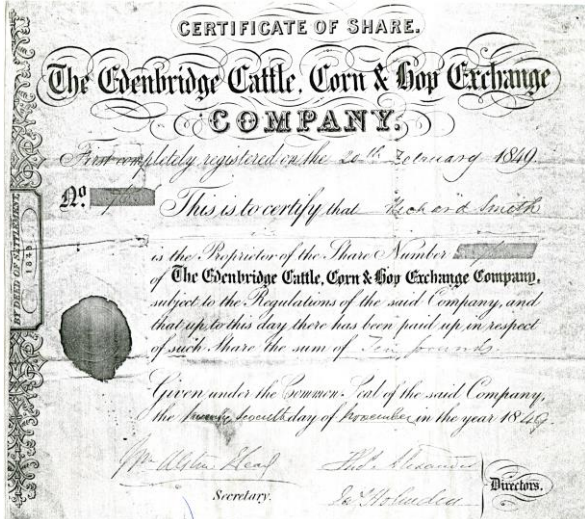 CERTIFICATE OF SHARE.
The Edenbridge Cattle, Corn & Hop Exchange
COMPANY.
First completely registered on the 20th February 1849.
No.
This is to certify that Richard Smith
is the Proprietor of the Share Number
of The Edenbridge Cattle, Corn & Hop Exchange Company,
subject to the Regulations of the said Company, and
that up to this day there has been paid up in respect
of such Share the sum of Ten pounds.
Given under the Common Seal of the said Company,
the day of November in the year 1849.
Secretary.
Directors.
BY DEED OF SETTLEMENT,
1849